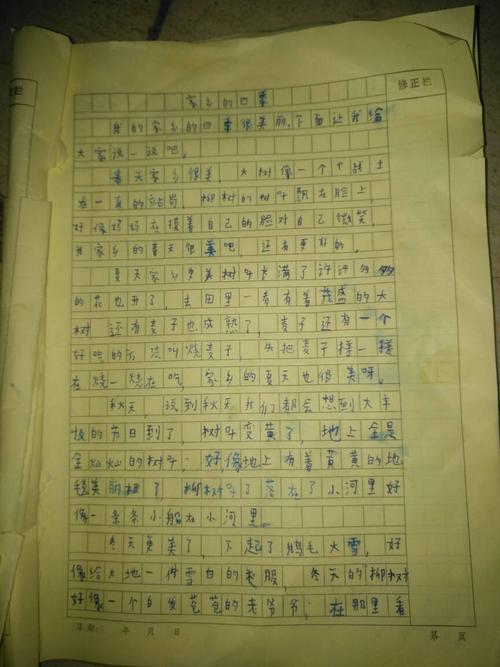 正栏
修正栏
家乡的四季
我的家乡的四季很美丽,下面让我给
大家说一说吧。
春天家乡很美,大树像一个个战士
在一直的站岗,柳树的树叶飘在脸上,
好像好好在摸着自己的脸对自己微笑。
我家乡的春天很美吧,还有更好的。
夏天家乡更美树叶长满了许许多多
的花也开了,去田里一看有着茂盛的大
树,还有麦子也成熟了,麦子还有一个
好吃的方法叫烧麦子,先把麦子搓一搓
在烧一烧在吃,家乡的夏天也很美呀。
秋天,说到秋天我们都会想到大丰
收的节日到了,树叶变黄了,地上全是
金灿灿的树叶,好像地上有着黄黄的地
毯美丽极了,柳树叶了落在了小河里好
像一条条小船在小河里。
冬天更美了,下起了鹅毛大雪,好
像给大地一件雪白的衣服,冬天的柳树
好像一个白发苍苍的老爷爷,在那里看
日期: 年 月 日
第 页